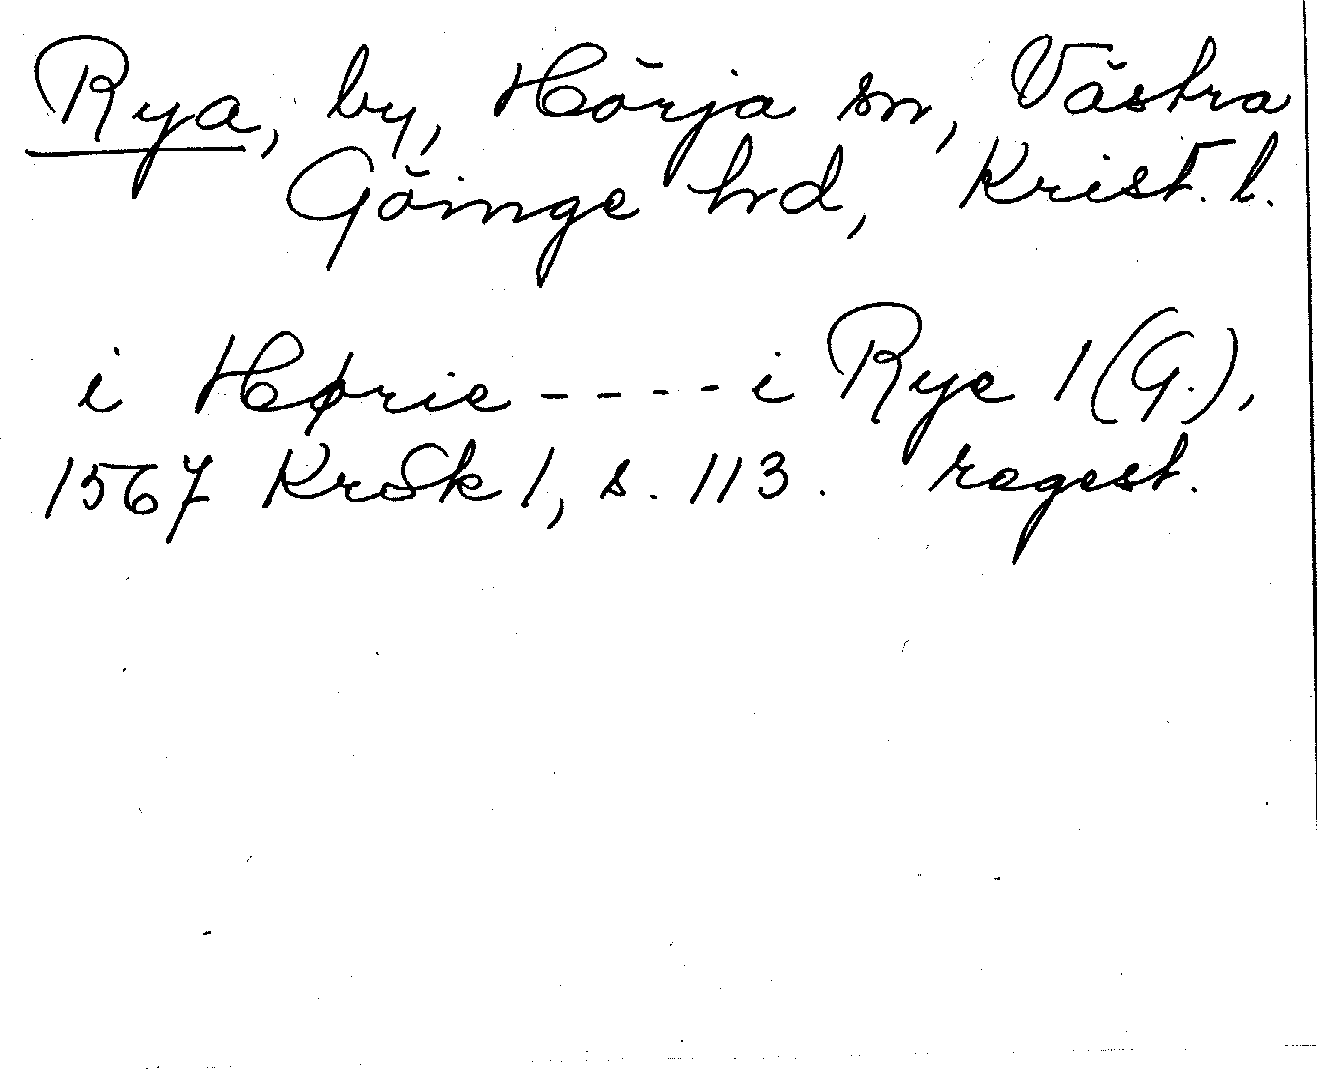 Rya, by, Hörja sn, Västra
Göinge hrd, Krist. l.
i Hørie - - - - i Rye 1 (G.),
1567 KroSk 1, s. 113. regest.